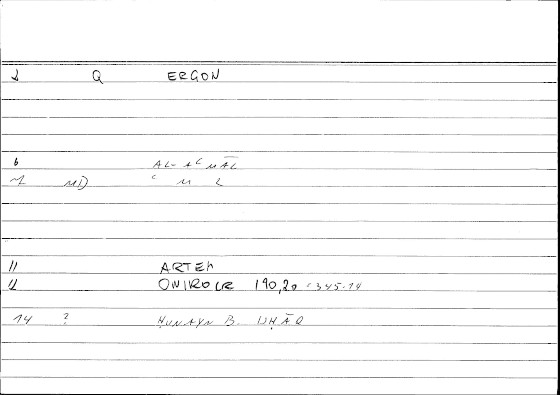 Q ERGON
6 AL-AʿMĀL
ʿ M L
11 ARTEM
12 ONIROCR 190,20 = 345.14
14 ? ḤUNAYN B. ISḤĀQ